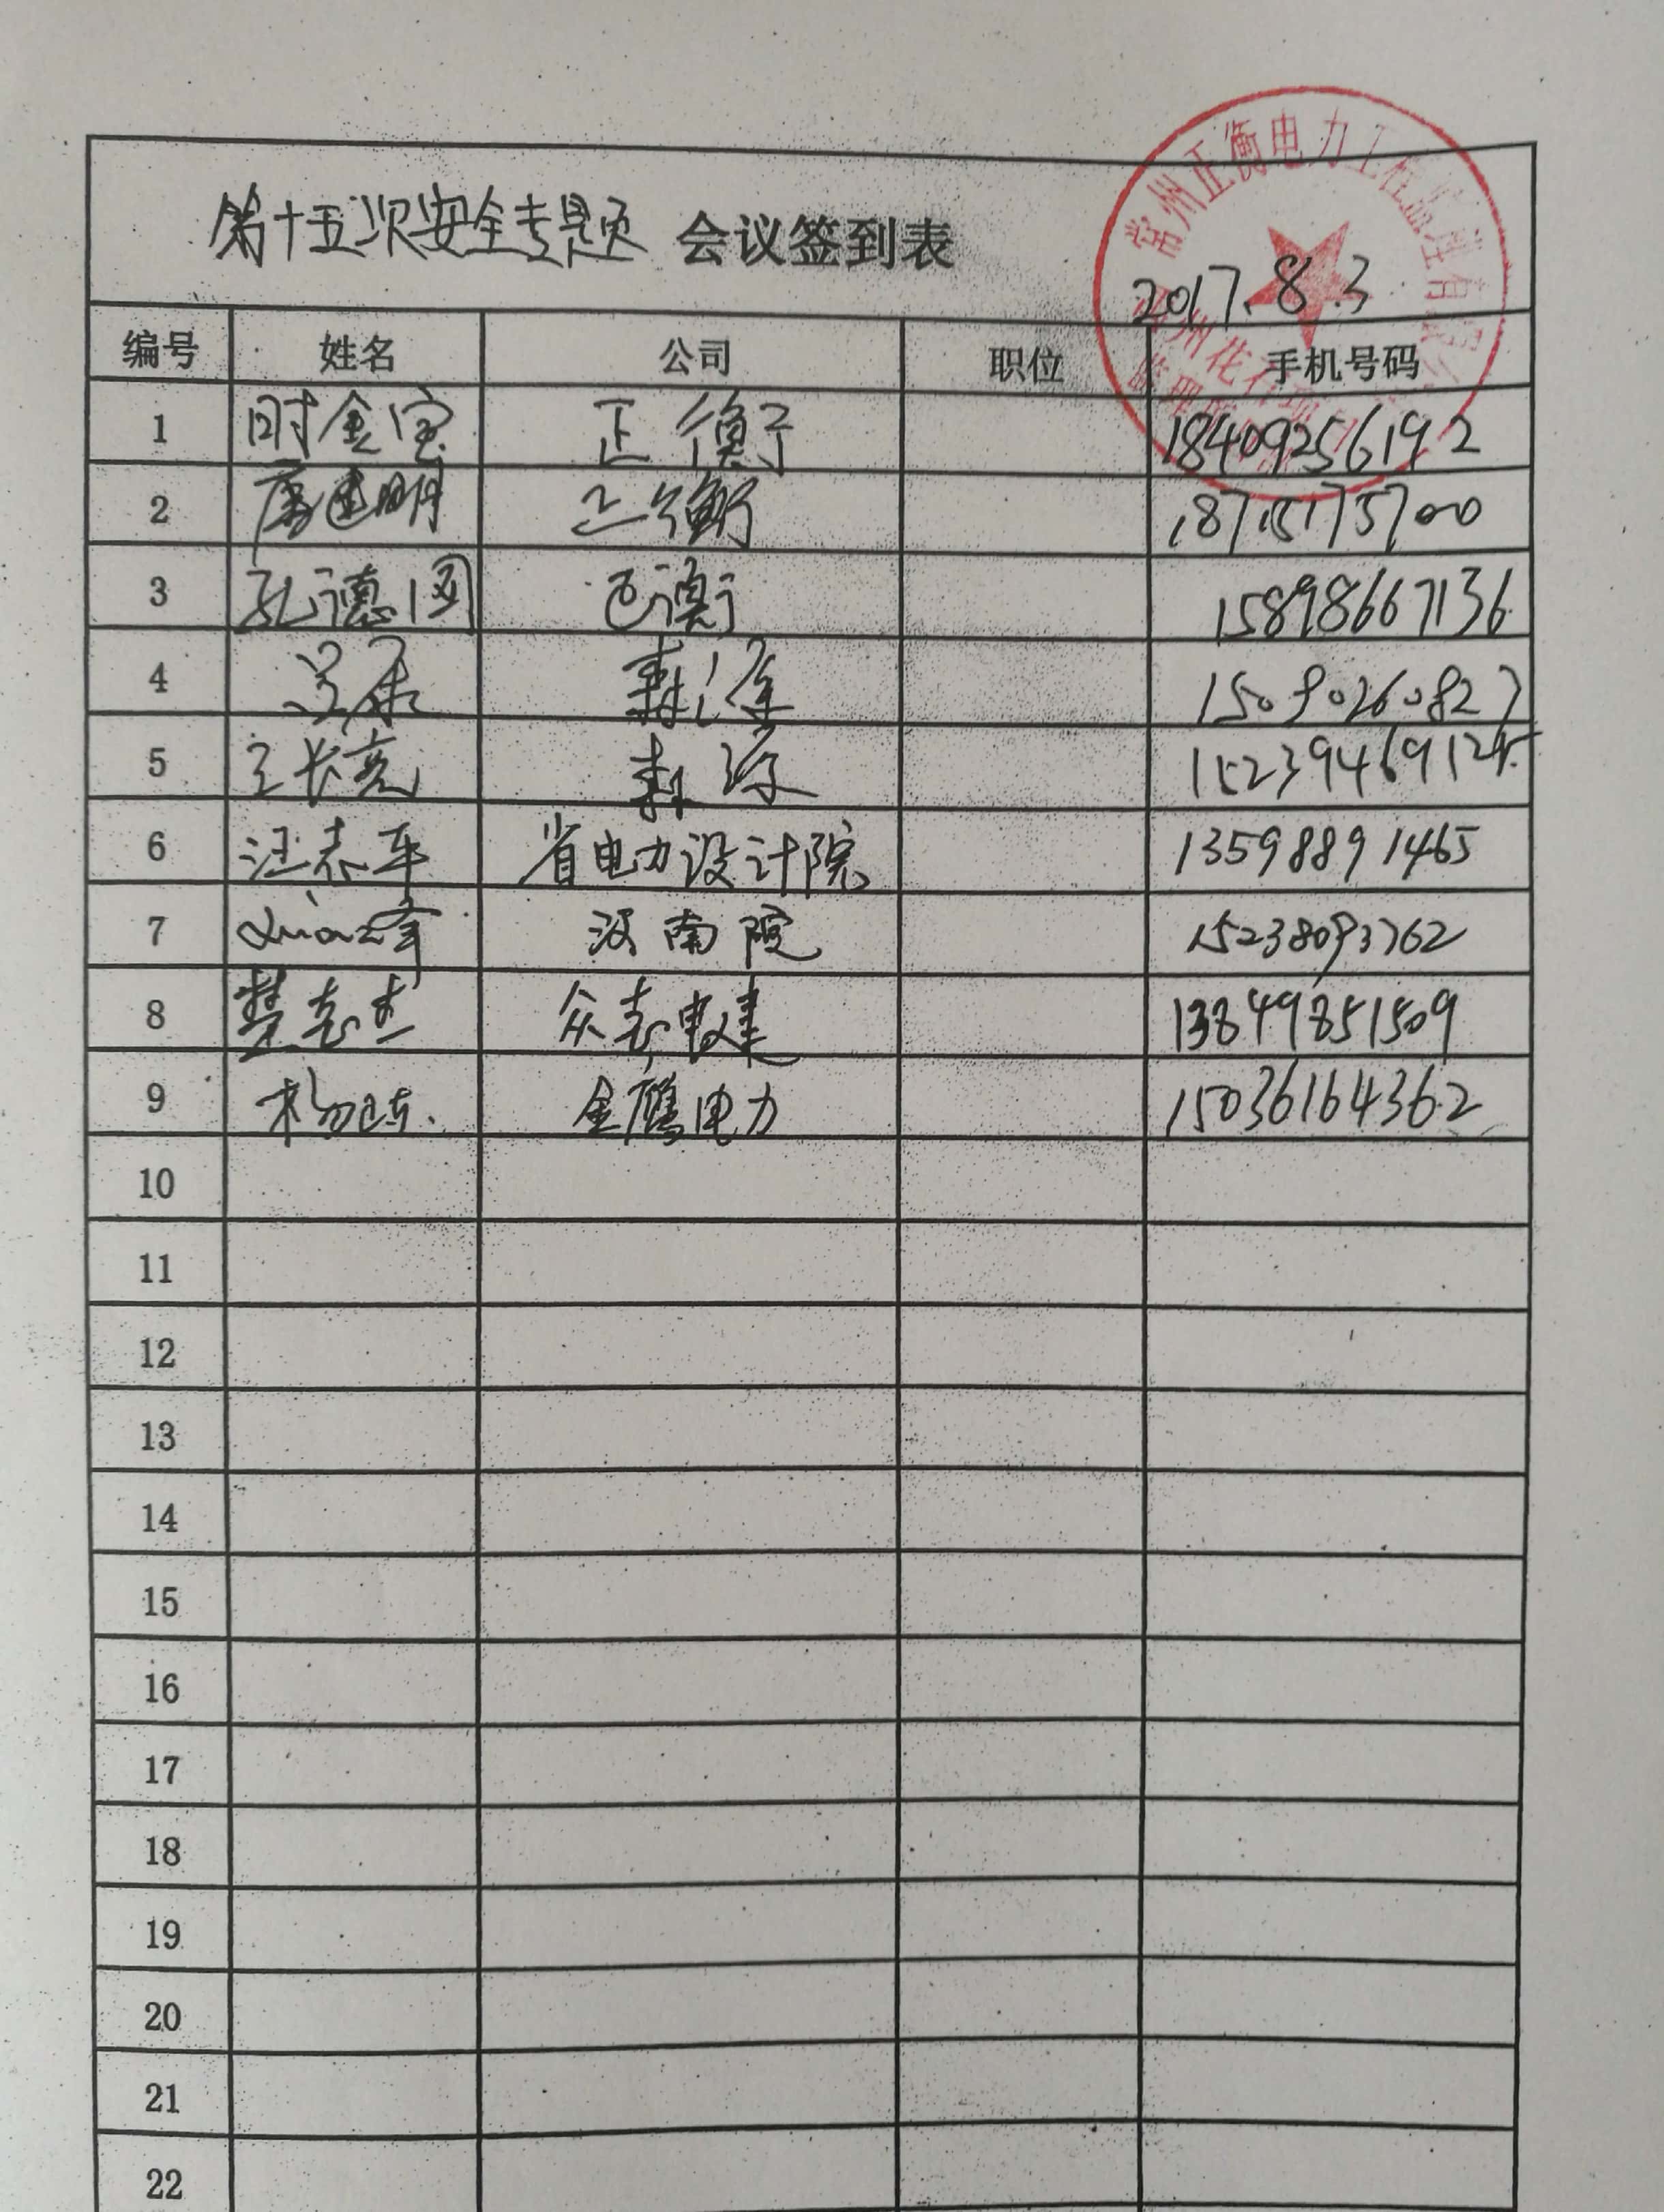 常州正衡电力工程监理有限公
第十五次安全专题 会议签到表
2017.8.3
编号 姓名 公司 职位 手机号码
1 时金宝 正衡 18409256192
2 唐建明 正衡 18715175700
3 孔德国 正衡 15898667136
4 森源 15090260827
5 王长亮 森源 15239469125
6 汪志平 省电力设计院 13598891465
7 河南院 15238093762
8 楚志杰 众志电建 13849851509
9 杨 金鹰电力 15036164362
10
11
12
13
14
15
16
17
18
19
20
21
22